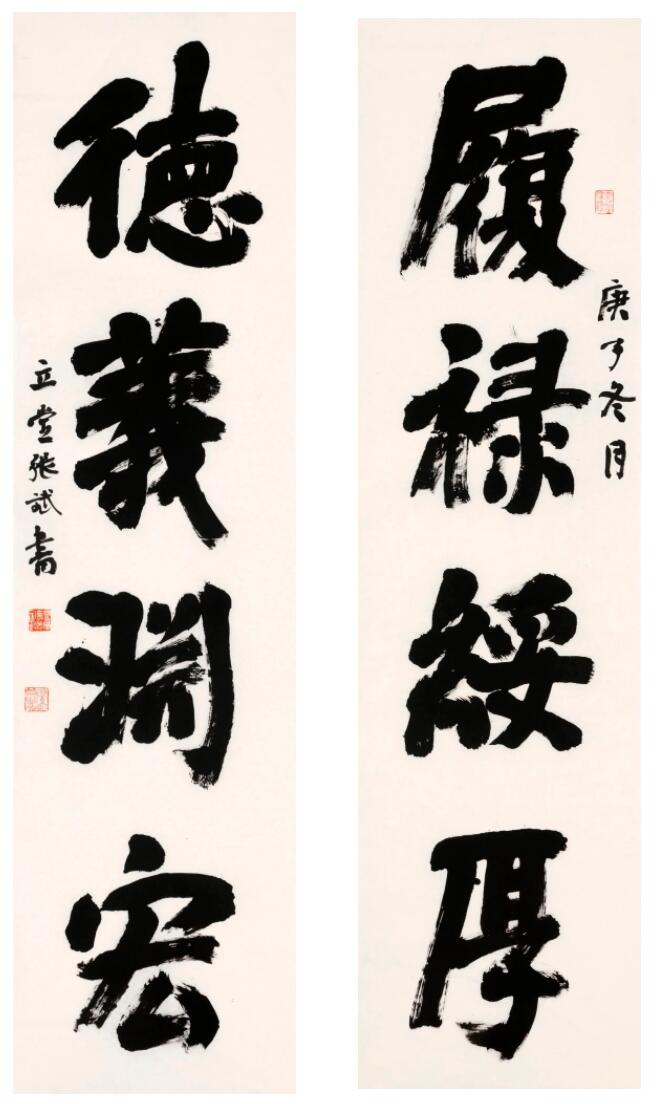 履禄綏厚
庚子冬月
德義淵宏
立堂張斌書